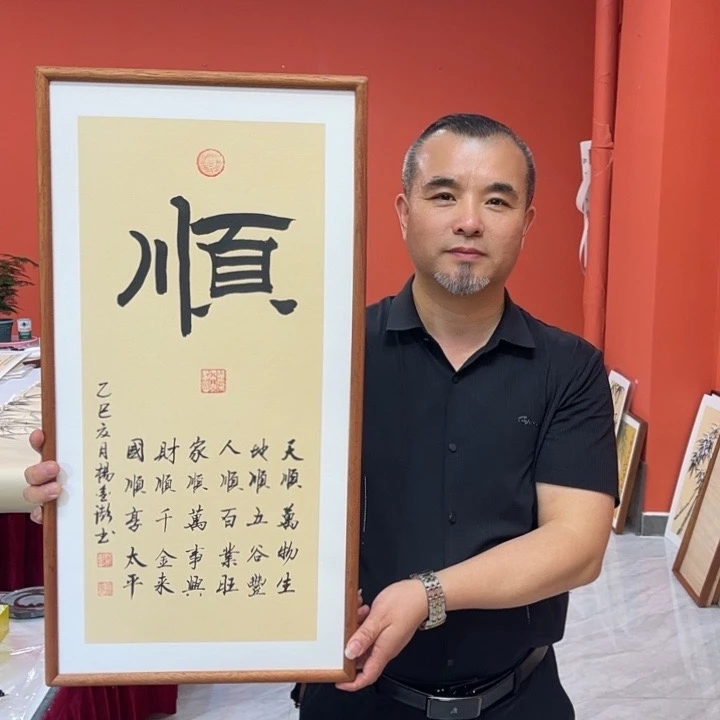 順
天順萬物生
地順五谷豐
人順百業旺
家順萬事興
財順千金來
國順享太平
乙巳夏月楊
書